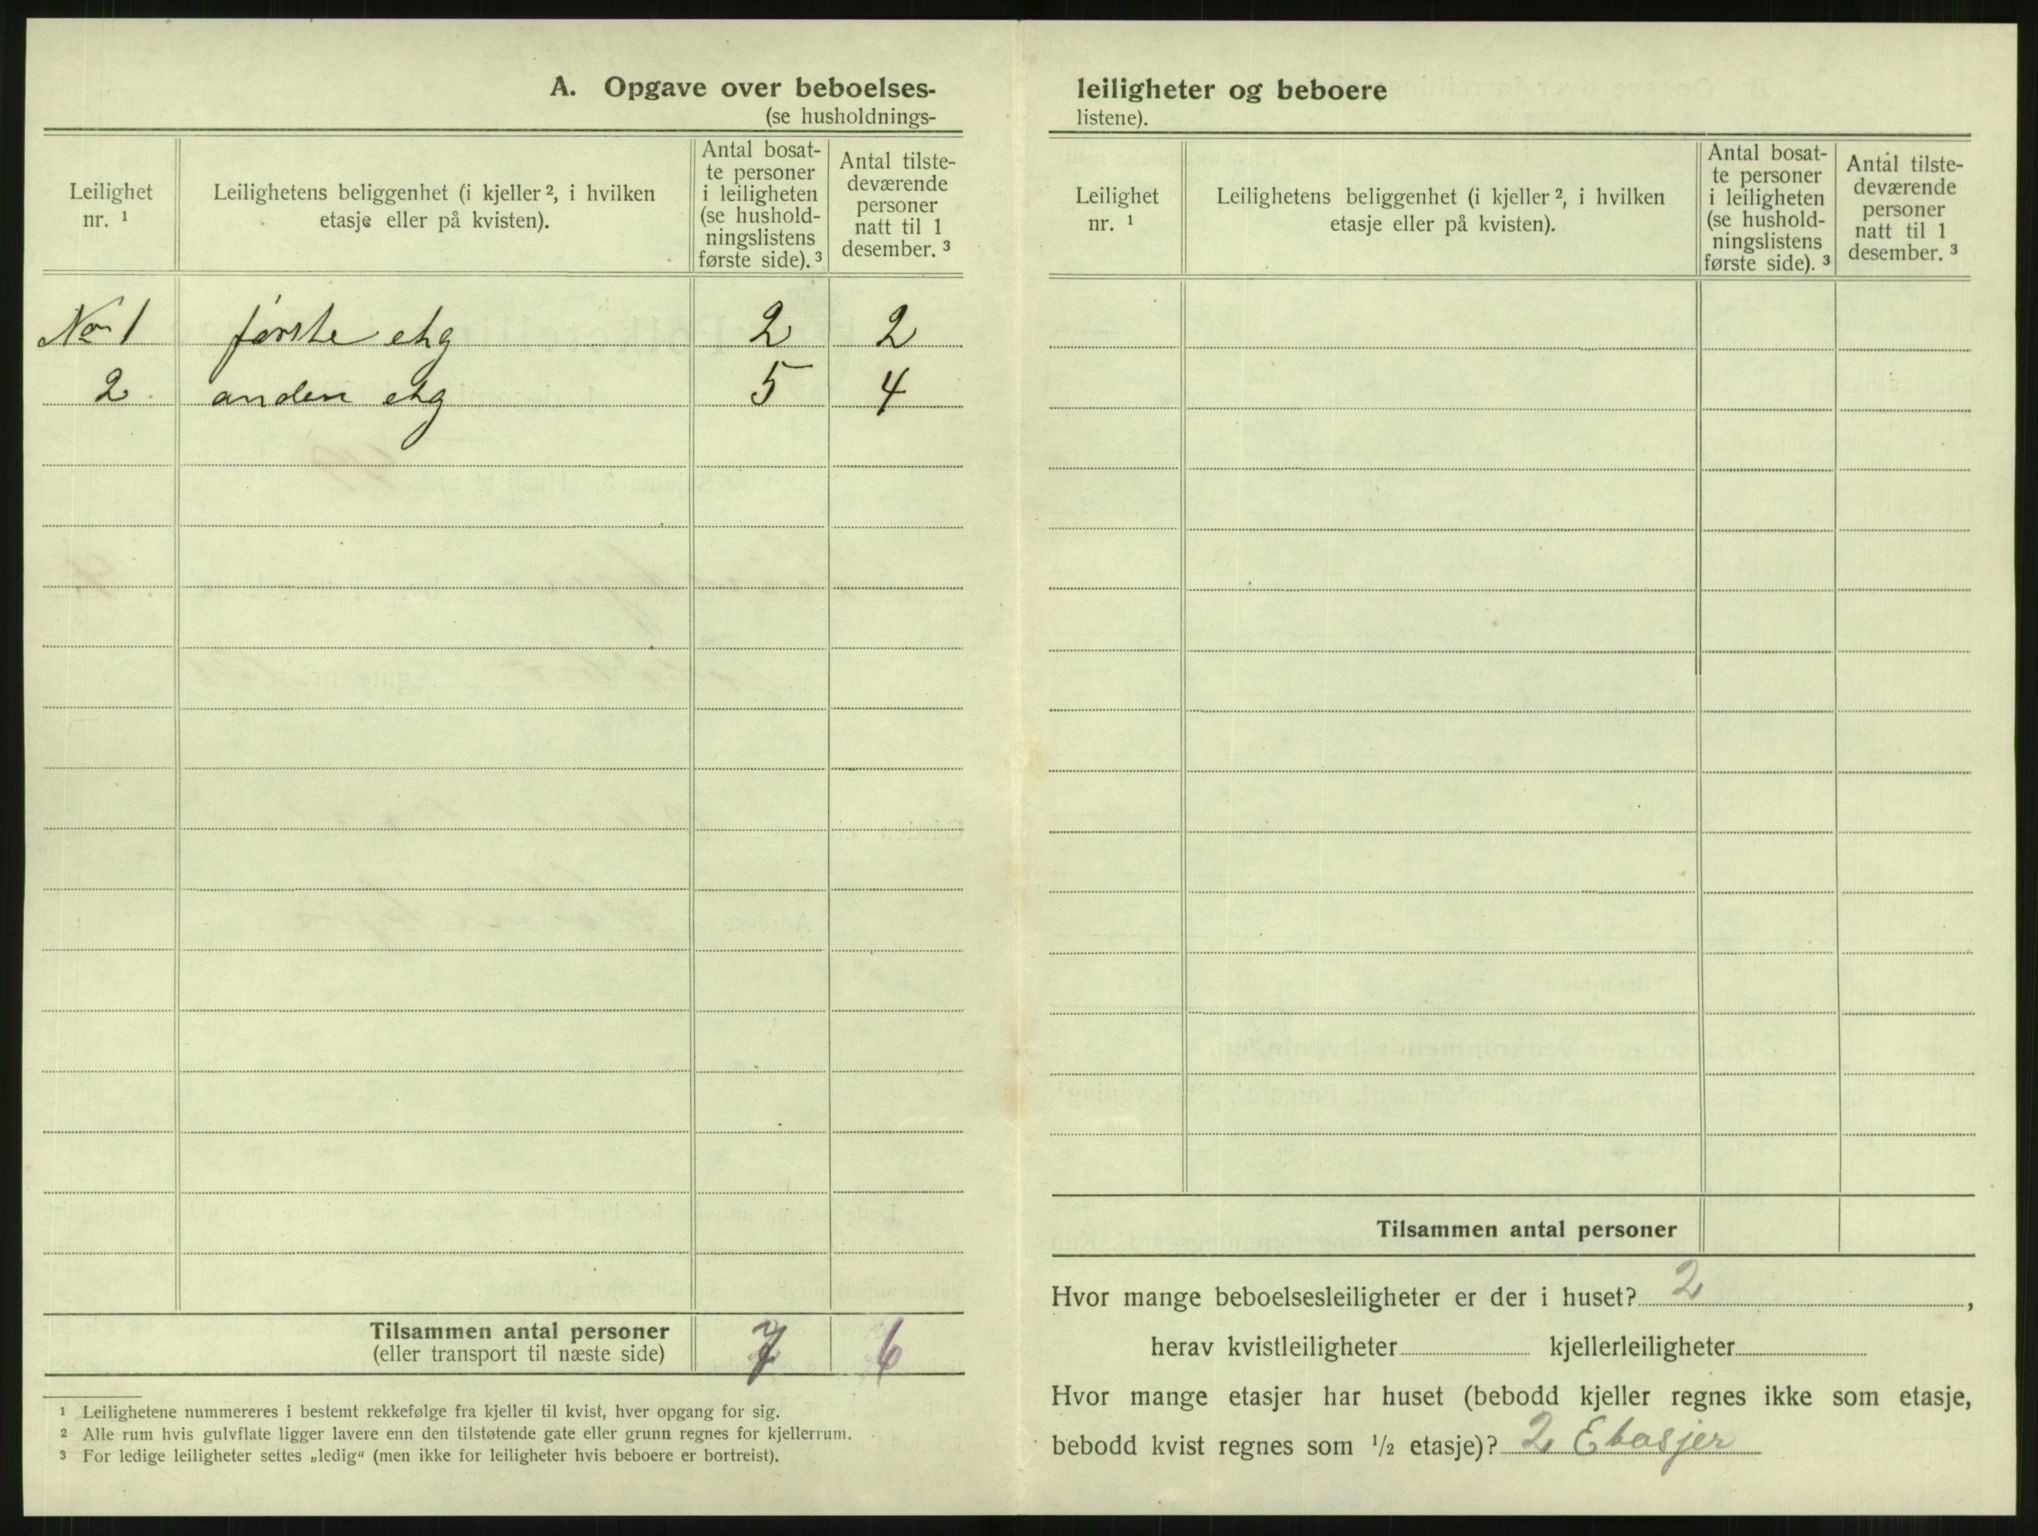 A. Opgave over beboelses-
(se husholdnings-
Leilighet nr. ¹
Leilighetens beliggenhet (i kjeller ², i hvilken etasje eller på kvisten).
Antal bosat-
te personer
i leiligheten
(se hushold-
ningslistens
første side). ³
Antal tilste-
deværende
personer
natt til 1
desember. ³
No 1 første etg 2 2
2 anden etg 5 4
Tilsammen antal personer 7 6
(eller transport til næste side)
¹ Leilighetene nummereres i bestemt rekkefølge fra kjeller til kvist, hver opgang for sig.
² Alle rum hvis gulvflate ligger lavere enn den tilstøtende gate eller grunn regnes for kjellerrum.
³ For ledige leiligheter settes „ledig“ (men ikke for leiligheter hvis beboere er bortreist).
leiligheter og beboere
listene).
Leilighet nr. ¹
Leilighetens beliggenhet (i kjeller ², i hvilken etasje eller på kvisten).
Antal bosat-
te personer
i leiligheten
(se hushold-
ningslistens
første side). ³
Antal tilste-
deværende
personer
natt til 1
desember. ³
Tilsammen antal personer
Hvor mange beboelsesleiligheter er der i huset? 2 ,
herav kvistleiligheter kjellerleiligheter
Hvor mange etasjer har huset (bebodd kjeller regnes ikke som etasje,
bebodd kvist regnes som ½ etasje)? 2 Etasjer